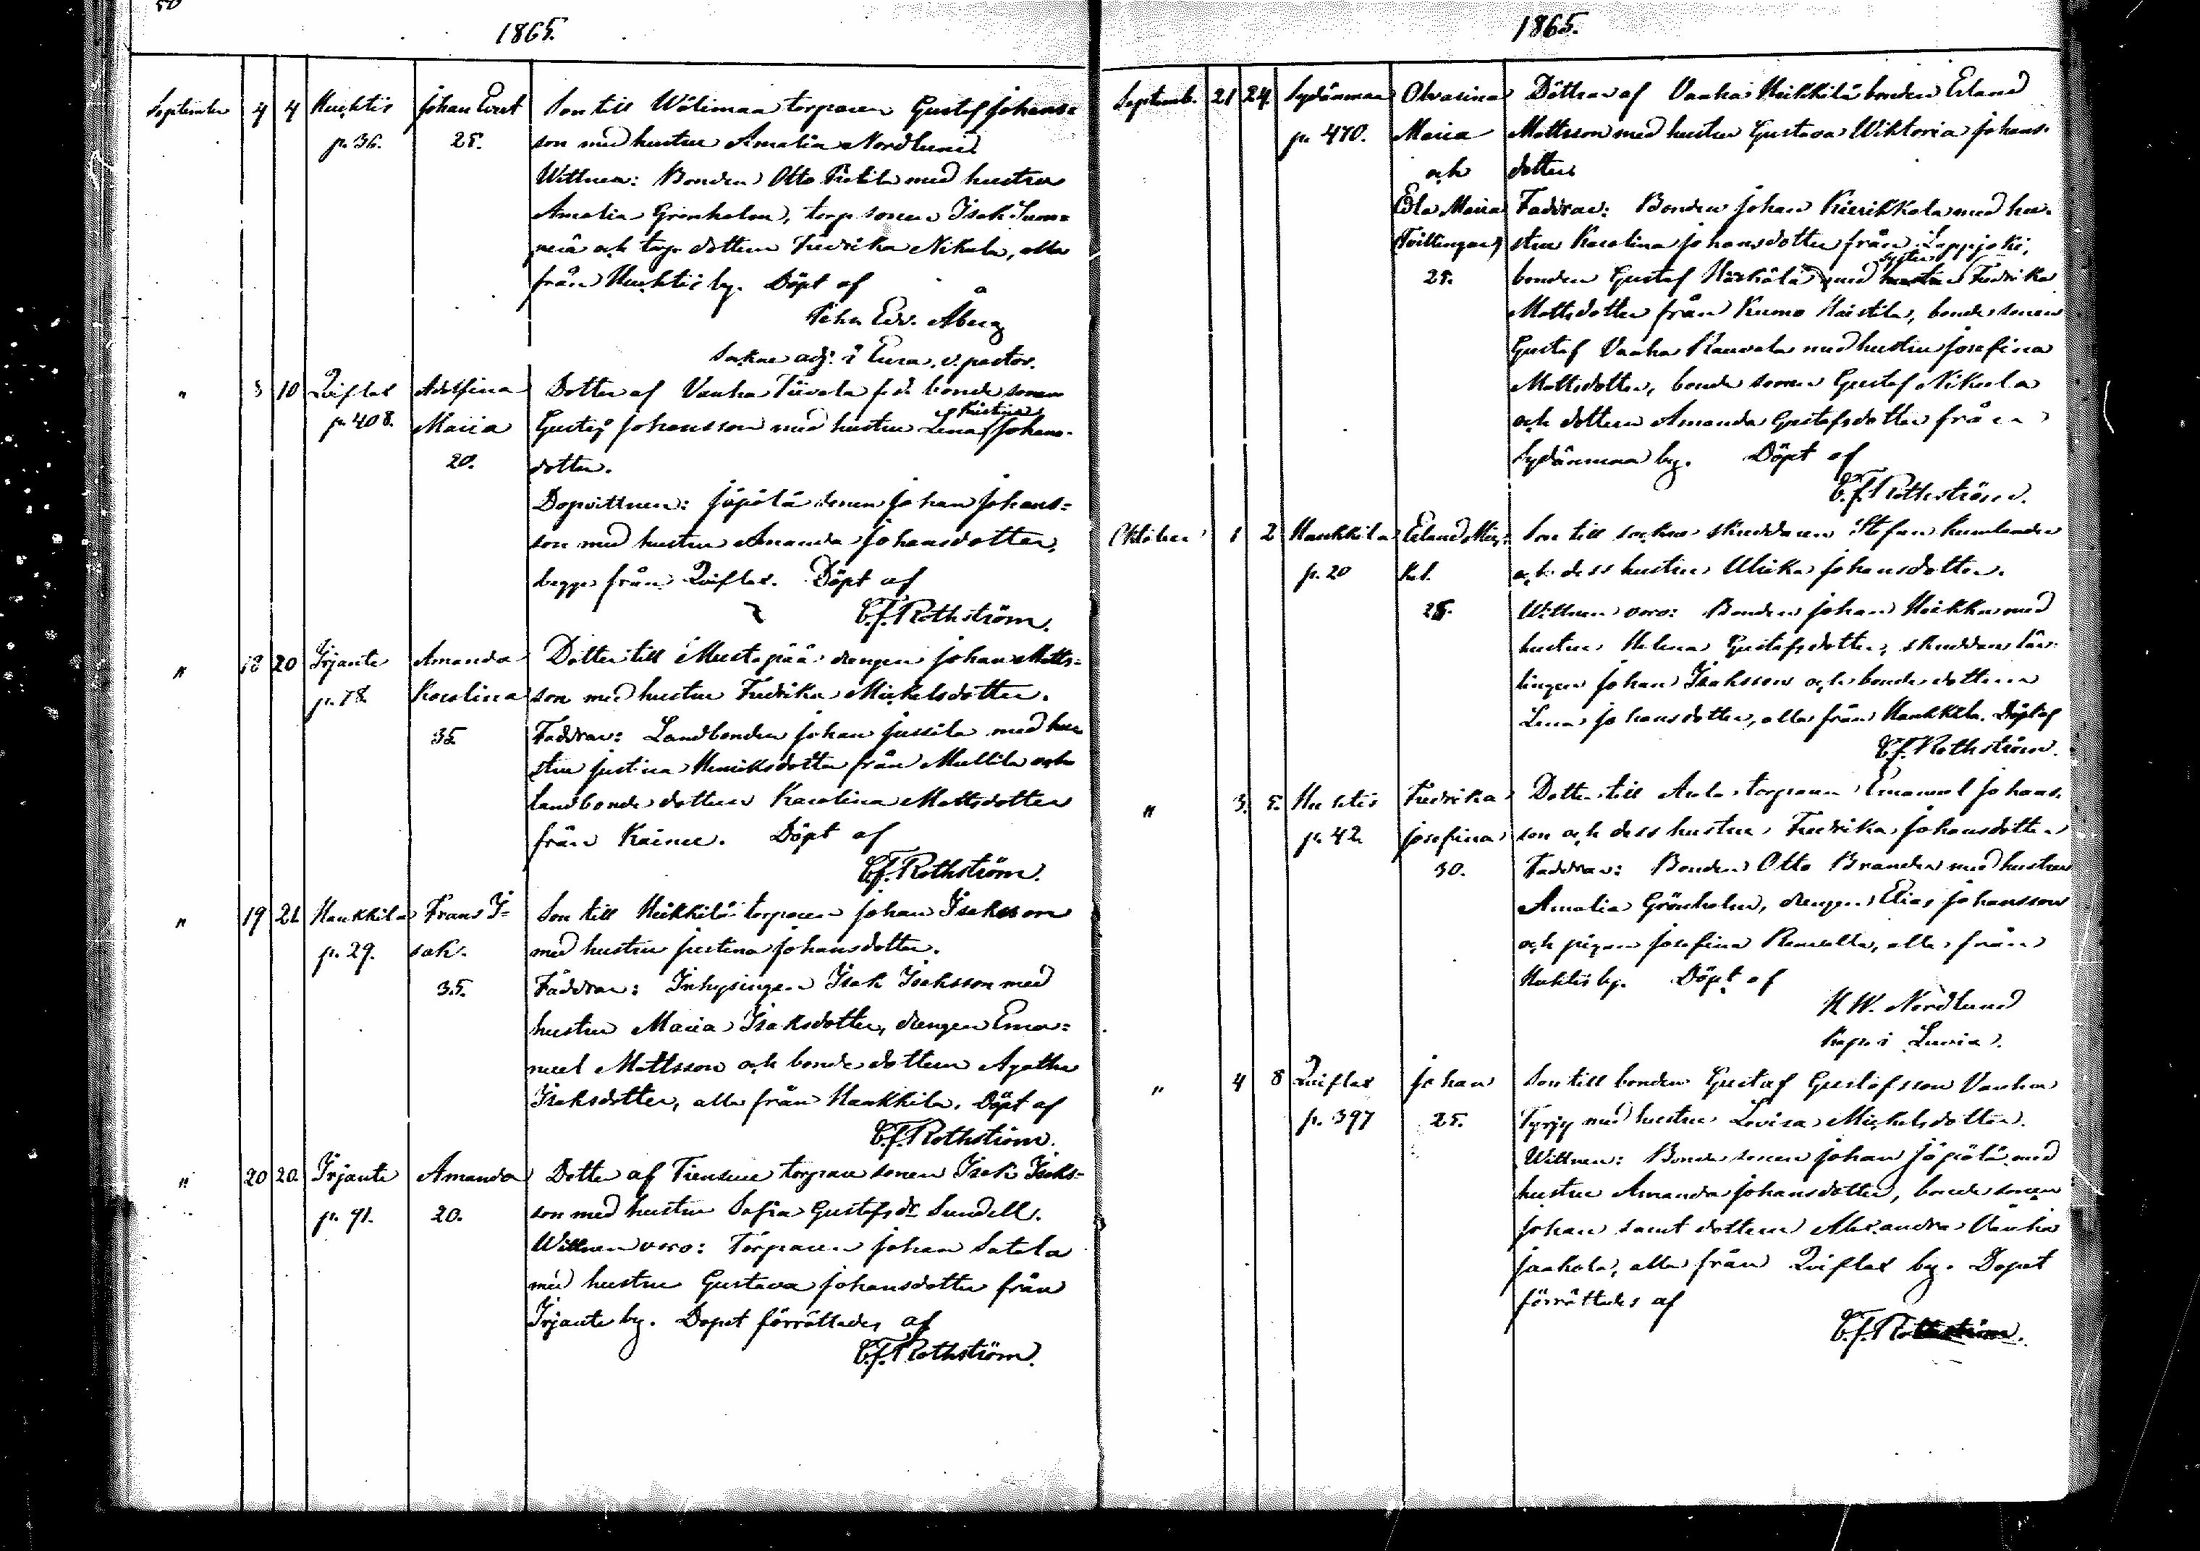 50
1865.
September 4 4 Huhtis Johan Evert Son till Wälimaa torparen Gustaf Johans=
p. 36. 25. son med hustru Amalia Nordlund
Wittnen: Bonden Otto med hustru
Amalia Grönholm, torp. sonen Isak
och torp. dottern Fredrika Nikula, alla
från Huhtis by. Döpt af
Joh. Edv. Åberg
Sockne adj. i Eura, v. pastor.
" 3 10 Quiflax Adolfina Dotter af Vanha Tiivola f.d. bonde sonen
p. 408. Maria Gustaf Johansson med hustru Lena Kristina Johans-
20. dotter.
Dopvittnen: Jäpölä sonen Johan Johans=
son med hustru Amanda Johansdotter,
begge från Quiflax. Döpt af
C.f. Rothström.
" 18 20 Irjante Amanda Dotter till Mustapää drengen Johan Matts=
p. 78 Karolina son med hustru Fredrika Mickelsdotter.
35 Faddrar: Landbonden Johan Jussila med hu
stru Justina Henriksdotter från Mullila och
landbonde dottern Karolina Mattsdotter
från Kainu. Döpt af
C.f. Rothström.
" 19 21 Hankkila Frans I= Son till Heikkilä torparen Johan Isaksson
p. 29. sak. med hustru Justina Johansdotter.
35. Faddrar: Inhysingen Isak Isaksson med
hustru Maria Isaksdotter, drengen Ema=
nuel Mattsson och bonde dottern Agatha
Isaksdotter, alla från Hankkila. Döpt af
C.f. Rothström.
" 20 20. Irjante Amanda Dotter af torpare sonen Isak Isaks=
p. 91. 20. son med hustru Sofia Gustafsdr Sundell.
Wittnen voro: Torparen Johan Satola
med hustru Gustava Johansdotter från
Irjante by. Dopet förrättades af
C.f. Rothström.
1865.
Septemb. 21 24. Sydänmaa Olvasina Döttrar af Vanha Heikkilä bonden Erland
p. 470. Maria Mattsson med hustru Gustava Wiktoria Johans-
och dotter
Edla Maria Faddrar: Bonden Johan Kierikkala med hu-
(Tvillingar) stru Karolina Johansdotter från Lappjoki,
25. bonden Gustaf Härkälä med syster Fredrika
Mattsdotter från Kumo Haistila, bonde sonen
Gustaf Vanha Rauvola med hustru Josefina
Mattsdotter, bonde sonen Gustaf Nikula
och dottern Amanda Gustafsdotter från
Sydänmaa by. Döpt af
C.f. Rothström.
Oktober 1 2 Hankkila Erland Mic- Son till sockne skräddaren Stefan Kumlander
p. 20 kel. och dess hustru Ulrika Johansdotter.
25. Wittnen voro: Bonden Johan Heikka med
hustru Helena Gustafsdotter, skräddare lär-
lingen Johan Isaksson och bonde dottern
Lena Johansdotter, alla från Hankkila. Döpt af
C.f. Rothström.
" 3. 5. Huhtis Fredrika Dotter till Aula torparen Emanuel Johans-
p. 42 Josefina son och dess hustru Fredrika Johansdotter
30. Faddrar: Bonden Otto Brander med hustru
Amalia Grönholm, drengen Elias Johansson
och pigan Josefina, alla från
Huhtis by. Döpt af
K W. Nordlund
Kapn i Luvia.
" 4 8 Quiflax Johan Son till bonden Gustaf Gustafsson Vanha
p. 397 25. Tyrjy med hustru Lovisa Mickelsdotter.
Wittnen: Bonde sonen Johan Jäpölä med
hustru Amanda Johansdotter, bonde sonen
Johan samt dottern Alexandra Vanha
Jaakola, alla från Quiflax by. Dopet
förrättades af
C.f. Rothström.